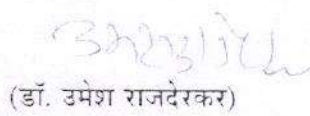 (डॉ. उमेश राजदेरकर)